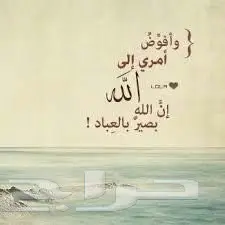 { وأفوِّضُ
أمري إلى
الله
LOLA
إنَّ الله
بصيرٌ بالعِباد !
حراج